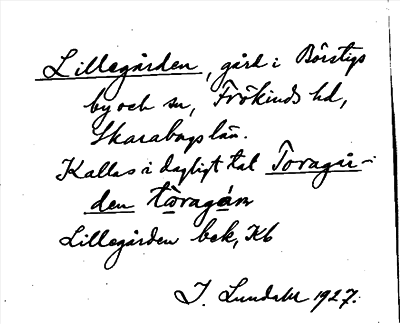 Lillegården, gård i Börstigs
by och sn, Frökinds hd,
Skarabogs län.
Kallas i dagligt tal Toragår-
den tòragán
Lillegården bek, Kb
J. Lundahl 1927.